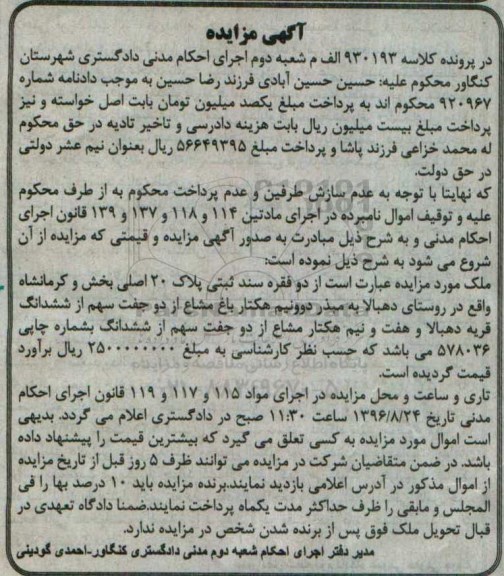 آگهی مزایده
در پرونده کلاسه ۹۳۰۱۹۳ الف م شعبه دوم اجرای احکام مدنی دادگستری شهرستان
کنگاور محکوم علیه: حسین حسین آبادی فرزند رضا حسین به موجب دادنامه شماره
۹۲۰۹۶۷ محکوم اند به پرداخت مبلغ یکصد میلیون تومان بابت اصل خواسته و نیز
پرداخت مبلغ بیست میلیون ریال بابت هزینه دادرسی و تاخیر تادیه در حق محکوم
له محمد خزاعی فرزند پاشا و پرداخت مبلغ ۵۶۶۴۹۳۹۵ ریال بعنوان نیم عشر دولتی
در حق دولت.
که نهایتا با توجه به عدم سازش طرفین و عدم پرداخت محکوم به از طرف محکوم
علیه و توقیف اموال نامبرده در اجرای مادتین ۱۱۴ و ۱۱۸ و ۱۳۷ و ۱۳۹ قانون اجرای
احکام مدنی و به شرح ذیل مبادرت به صدور آگهی مزایده و قیمتی که مزایده از آن
شروع می شود به شرح ذیل نموده است:
ملک مورد مزایده عبارت است از دو فقره سند ثبتی پلاک ۲۰ اصلی بخش و کرمانشاه
واقع در روستای دهبالا به میذر دوونیم هکتار باغ مشاع از دو جفت سهم از ششدانگ
قریه دهبالا و هفت و نیم هکتار مشاع از دو جفت سهم از ششدانگ بشماره چاپی
۵۷۸۰۳۶ می باشد که حسب نظر کارشناسی به مبلغ ۲۵۰۰۰۰۰۰۰۰ ریال برآورد
قیمت گردیده است.
تاری و ساعت و محل مزایده در اجرای مواد ۱۱۵ و ۱۱۷ و ۱۱۹ قانون اجرای احکام
مدنی تاریخ ۱۳۹۶/۸/۲۴ ساعت ۱۱:۳۰ صبح در دادگستری اعلام می گردد. بدیهی
است اموال مورد مزایده به کسی تعلق می گیرد که بیشترین قیمت را پیشنهاد داده
باشد. در ضمن متقاضیان شرکت در مزایده می توانند ظرف ۵ روز قبل از تاریخ مزایده
از اموال مذکور در آدرس اعلامی بازدید نمایند.برنده مزایده باید ۱۰ درصد بها را فی
المجلس و مابقی را ظرف حداکثر مدت یکماه پرداخت نمایند.ضمنا دادگاه تعهدی در
قبال تحویل ملک فوق پس از برنده شدن شخص در مزایده ندارد.
مدیر دفتر اجرای احکام شعبه دوم مدنی دادگستری کنگاور-احمدی گودینی